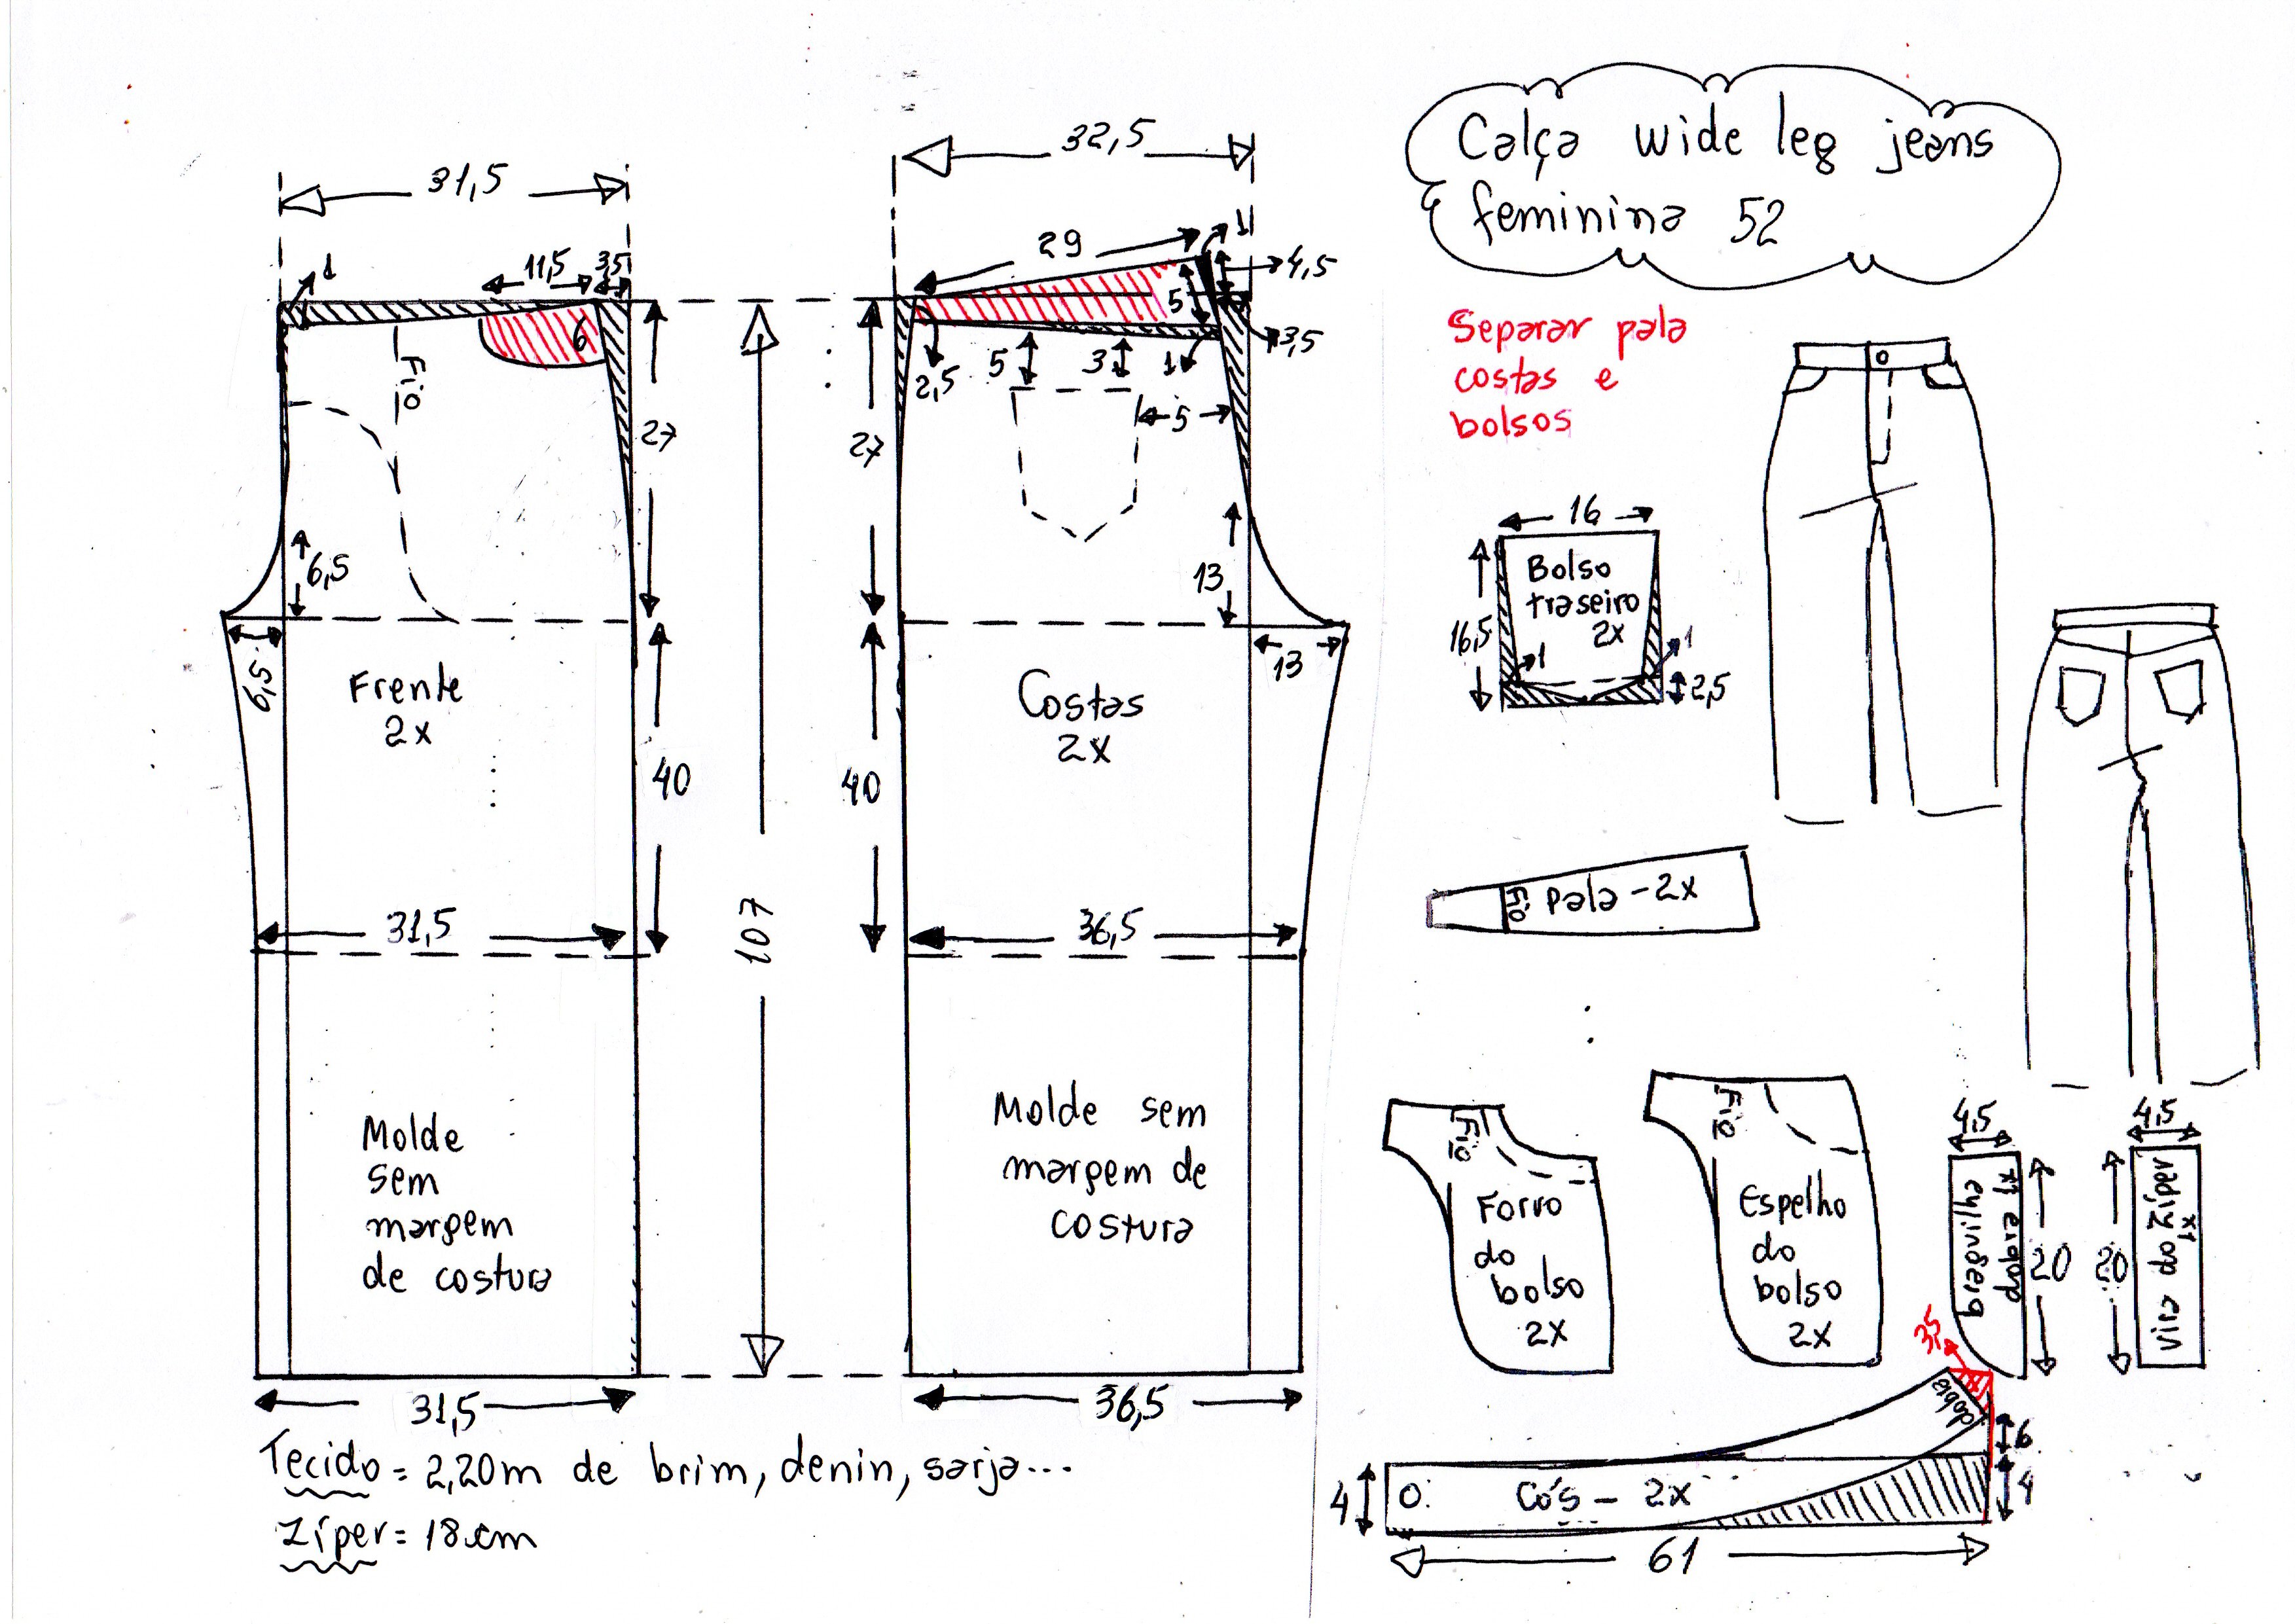 Calça wide leg jeans
feminina 52
32,5
31,5
29
1
4,5
11,5
3,5
1
5
3,5
6
Fio
2,5
5
3
1
5
27
27
6,5
13
6,5
13
Frente
2x
Costas
2x
40
40
107
31,5
36,5
Molde
sem
margem
de costura
Molde sem
margem de
costura
31,5
36,5
Tecido = 2,20m de brim, denin, sarja...
Zíper = 18cm
Separar pala
costas e
bolsos
16
Bolso
traseiro
2x
16,5
1
1
2,5
Fio
Pala - 2x
Fio
Forro
do
bolso
2x
Fio
Espelho
do
bolso
2x
4,5
braguilha
dobra 1x
20
4,5
vira do zíper
1x
20
3,5
dobra
6
4
4
Cós - 2x
61